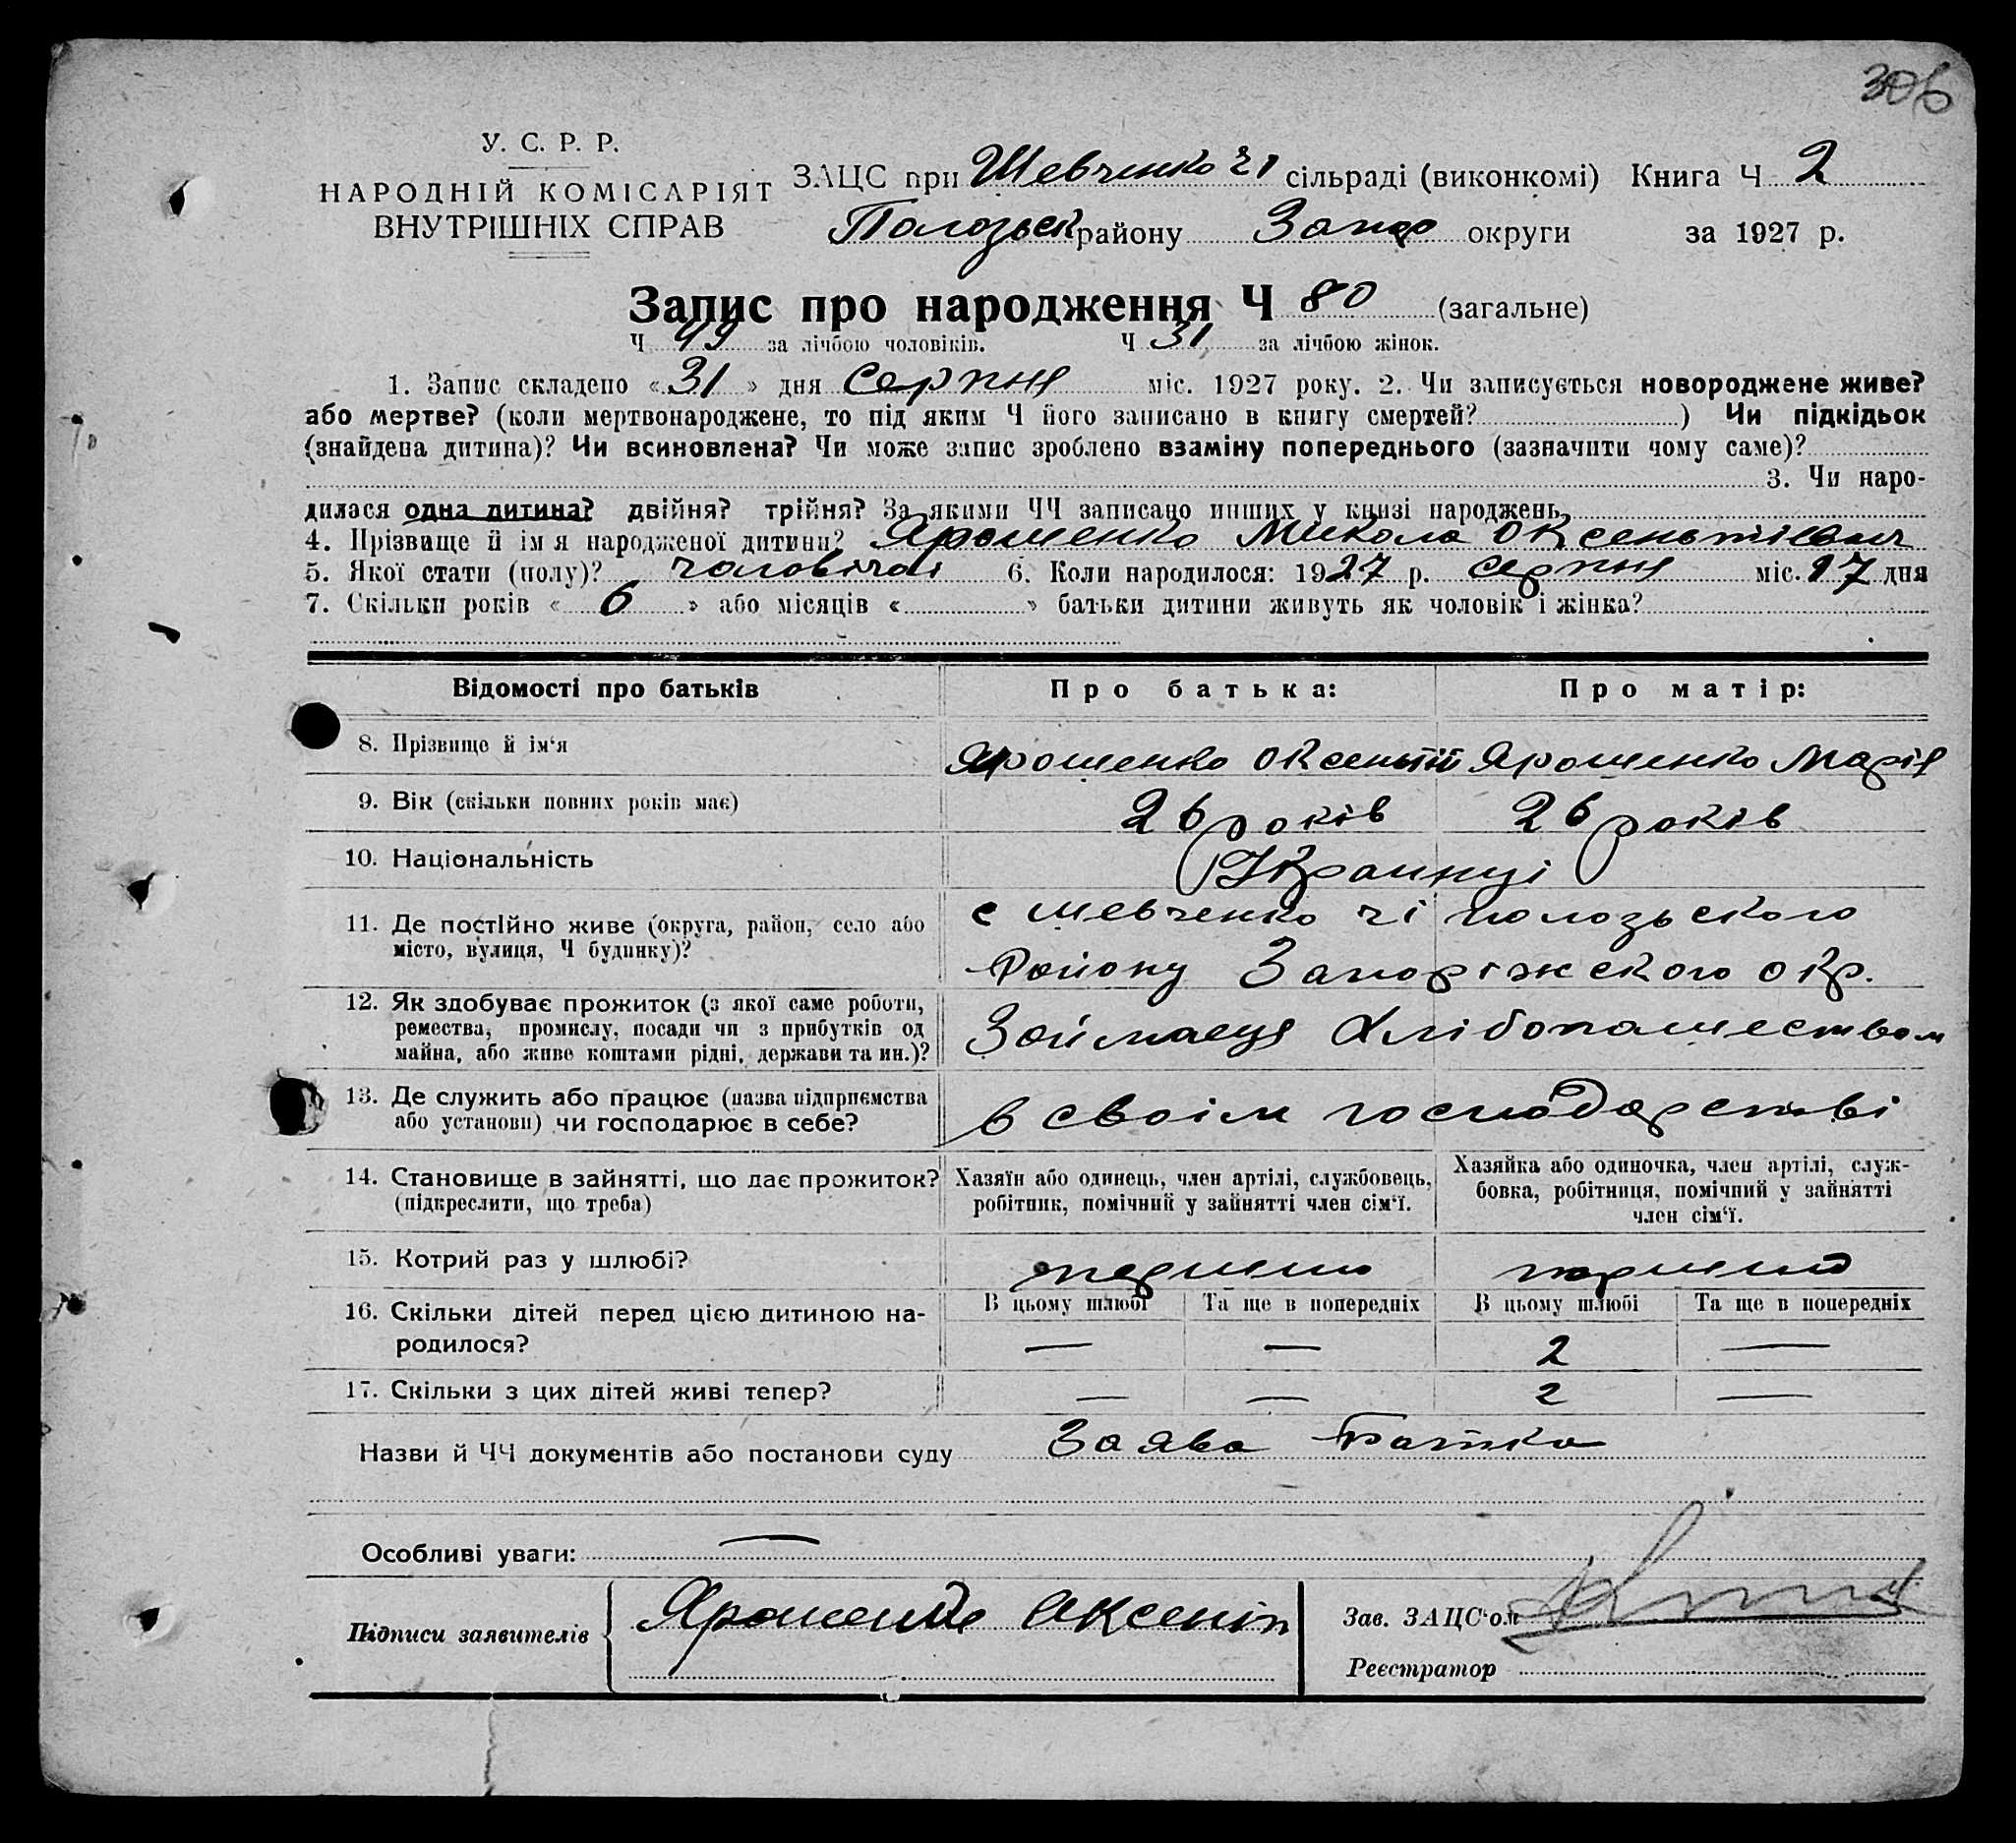 306
У. С. Р. Р.
НАРОДНІЙ КОМІСАРІЯТ
ВНУТРІШНІХ СПРАВ
ЗАЦС при Шевченко чі сільраді (виконкомі) Книга Ч 2
Пологзьск району Запор округи за 1927 р.
Запис про народження Ч 80 (загальне)
Ч 49 за лічбою чоловіків. Ч 31 за лічбою жінок.
1. Запис складено « 31 » дня Серпня міс. 1927 року. 2. Чи записується новороджене живе?
або мертве? (коли мертвонароджене, то під яким Ч його записано в книгу смертей? ) Чи підкідьок
(знайдена дитина)? Чи всиновлена? Чи може запис зроблено взаміну попереднього (зазначити чому саме)?
3. Чи наро-
дилася одна дитина? двійня? трійня? За якими ЧЧ записано инших у книзі народжень
4. Прізвище й ім я народженої дитини? Ярошенко Микола Оксентієвич
5. Якої стати (полу)? чоловічої 6. Коли народилося: 1927 р. серпня міс. 17 дня
7. Скільки років « 6 » або місяців « » батьки дитини живуть як чоловік і жінка?
Відомості про батьків Про батька: Про матір:
8. Прізвище й ім‘я Ярошенко Оксентій Ярошенко Марія
9. Вік (скільки повних років має) 26 років 26 років
10. Національність Українці
11. Де постійно живе (округа, район, село або
місто, вулиця, Ч будинку)?
с Шевченко чі пологзьского
Району Запоріжского окр.
12. Як здобуває прожиток (з якої саме роботи,
ремества, промислу, посади чи з прибутків од
майна, або живе коштами рідні, держави та ин.)?
Займаеця Хлібопашеством
13. Де служить або працює (назва підприємства
або установи) чи господарює в себе?
в своім господарстві
14. Становище в зайнятті, що дає прожиток?
(підкреслити, що треба)
Хазяїн або одинець, член артілі, службовець,
робітник, помічний у зайнятті член сім‘ї.
Хазяйка або одиночка, член артілі, служ-
бовка, робітниця, помічний у зайнятті
член сім‘ї.
15. Котрий раз у шлюбі? перший перший
16. Скільки дітей перед цією дитиною на-
родилося?
В цьому шлюбі Та ще в попередніх В цьому шлюбі Та ще в попередніх
— — 2 —
17. Скільки з цих дітей живі тепер? — — 2 —
Назви й ЧЧ документів або постанови суду Заява Батька
Особливі уваги: —
Підписи заявителів Ярошенко Аксентій
Зав. ЗАЦС‘ом
Реєстратор